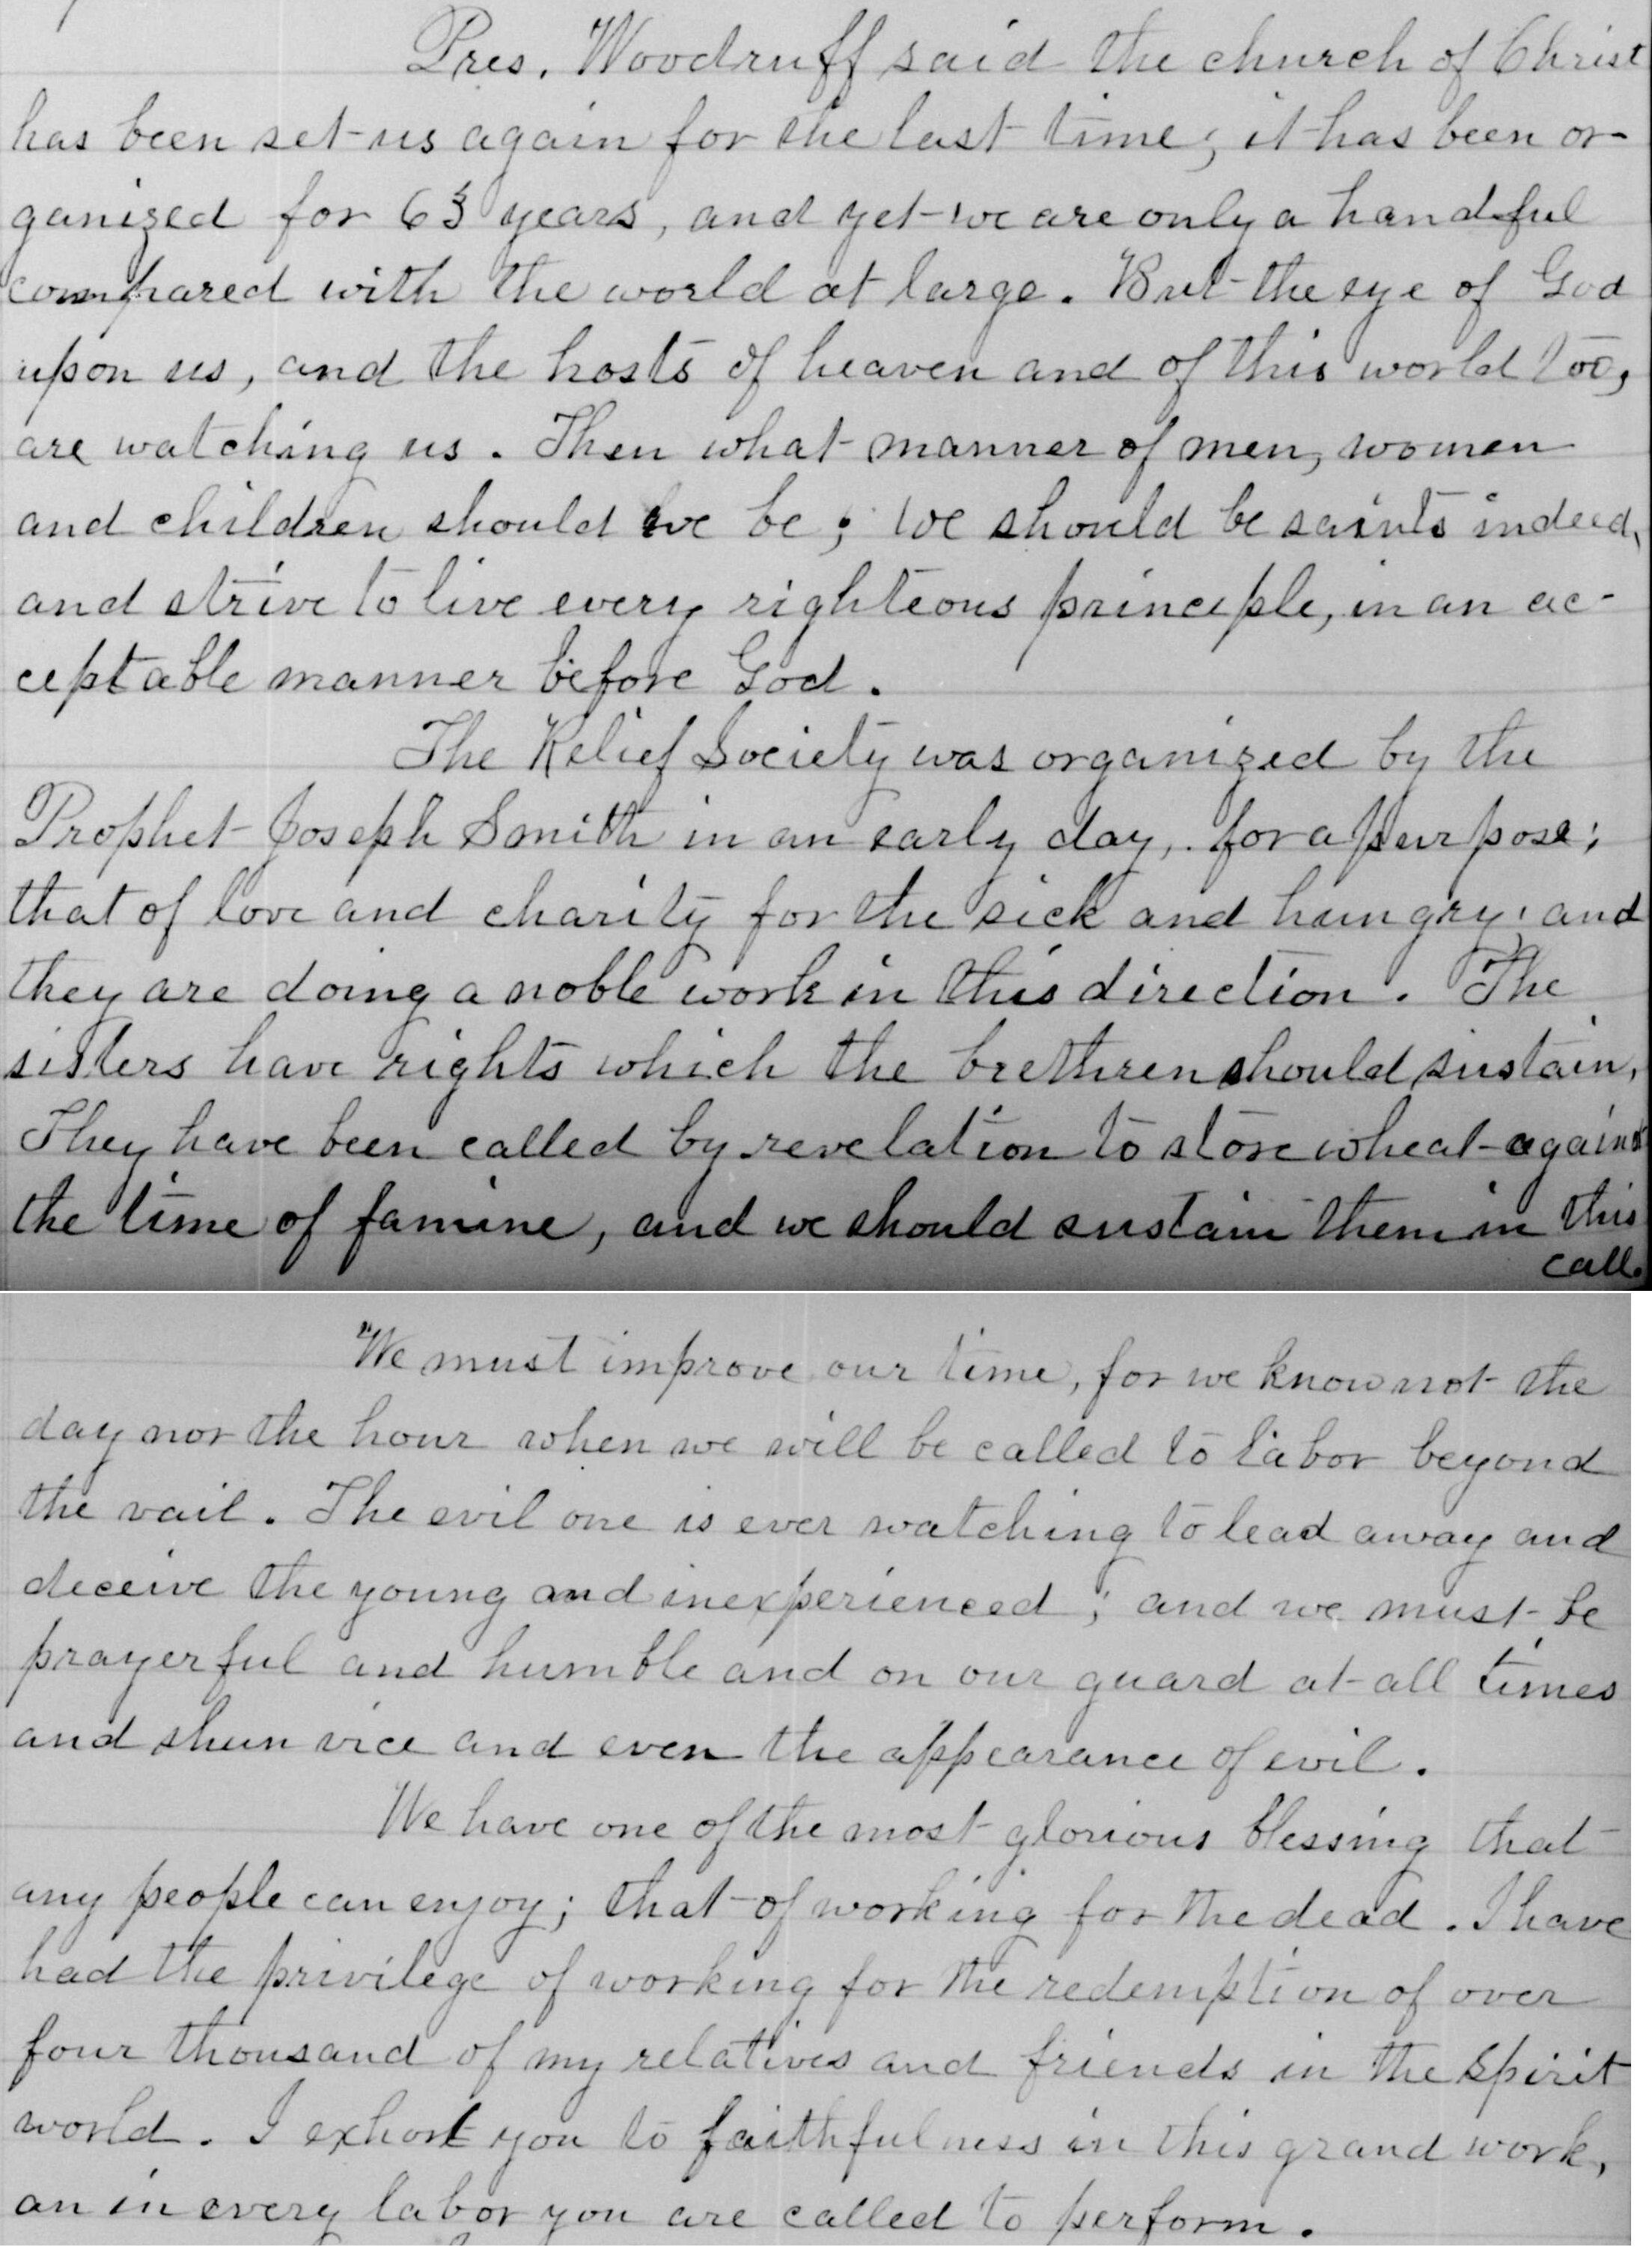 Pres. Woodruff said the church of Christ
has been set us again for the last time; it has been or-
ganized for 63 years, and yet we are only a handful
compared with the world at large. But the eye of God
upon us, and the hosts of heaven and of this world too,
are watching us. Then what manner of men, women
and children should we be; we should be saints indeed,
and strive to live every righteous principle, in an ac-
ceptable manner before God.
The Relief Society was organized by the
Prophet Joseph Smith in an early day, for a purpose;
that of love and charity for the sick and hungry, and
they are doing a noble work in this direction. The
sisters have rights which the brethren should sustain,
They have been called by revelation to store wheat against
the time of famine, and we should sustain them in this
call.
"We must improve our time, for we know not the
day nor the hour when we will be called to labor beyond
the vail. The evil one is ever watching to lead away and
deceive the young and inexperienced; and we must be
prayerful and humble and on our guard at all times
and shun vice and even the appearance of evil.
We have one of the most glorious blessing that
any people can enjoy; that of working for the dead. I have
had the privilege of working for the redemption of over
four thousand of my relatives and friends in the spirit
world. I exhort you to faithfulness in this grand work,
an in every labor you are called to perform.